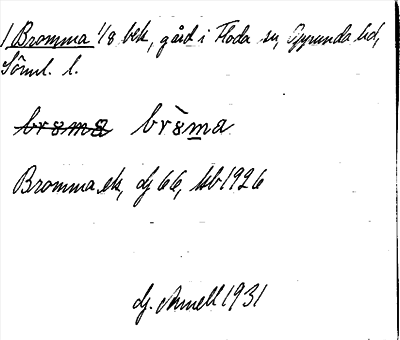 1 Bromma 1/8 bek, gård i Floda sn, Oppunda hd,
Söml. l.
brɷmɷ brɷ̀ma
Bromma ek, dj 66, kb 1926
dj. Arnell 1931